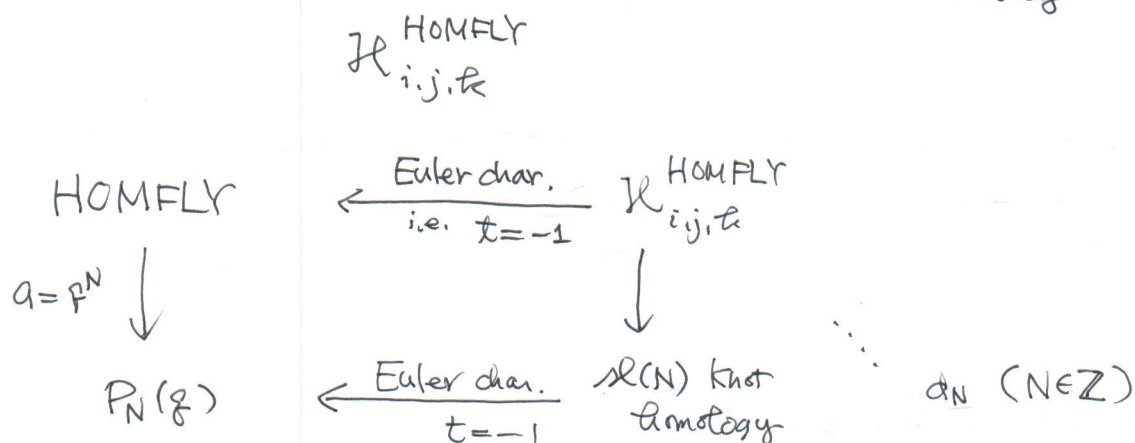 ℋ^{HOMFLY}_{i,j,k}
HOMFLY
Euler char.
i.e. t=-1
ℋ^{HOMFLY}_{i,j,k}
a=q^N
P_N(q)
Euler char.
t=-1
sl(N) knot
homology
d_N (N∈ℤ)